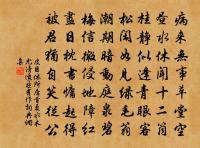 病來無事草堂空
晝水休聞十二筒
桂靜似逢青眼客
松閑如見綠毛翁
潮期暗動庭泉碧
梅信微侵地障紅
盡日枕書慵起得
被君猶自笑從公